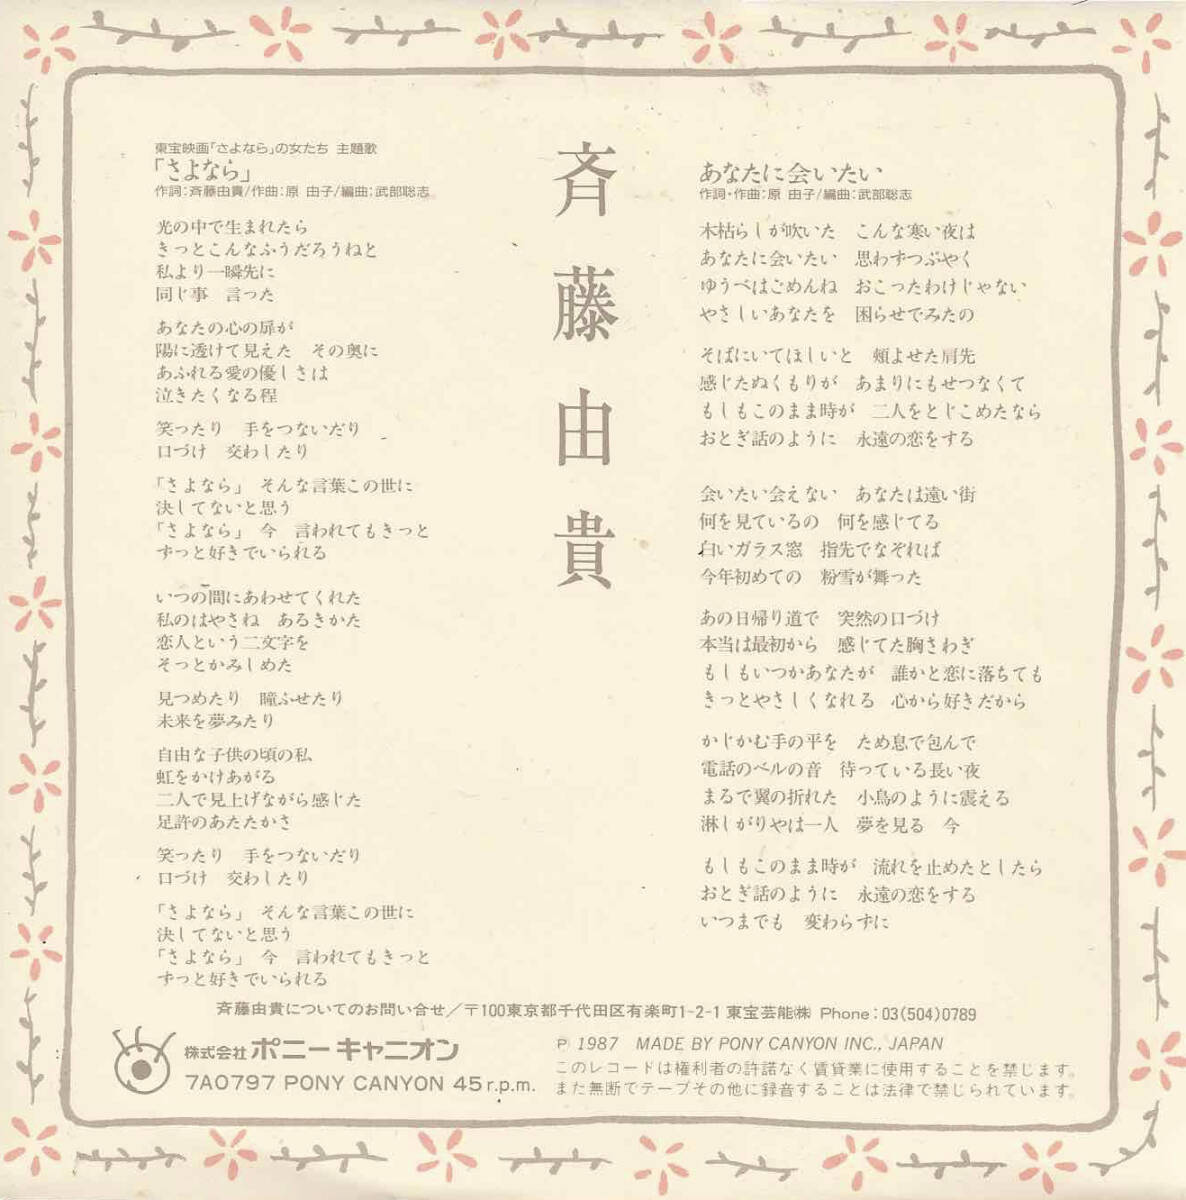 東宝映画「さよなら」の女たち 主題歌
「さよなら」
作詞:斉藤由貴/作曲:原 由子/編曲:武部聡志
光の中で生まれたら
きっとこんなふうだろうねと
私より一瞬先に
同じ事 言った
あなたの心の扉が
陽に透けて見えた その奥に
あふれる愛の優しさは
泣きたくなる程
笑ったり 手をつないだり
口づけ 交わしたり
「さよなら」 そんな言葉この世に
決してないと思う
「さよなら」 今 言われてもきっと
ずっと好きでいられる
いつの間にあわせてくれた
私のはやさね あるきかた
恋人という二文字を
そっとかみしめた
見つめたり 瞳ふせたり
未来を夢みたり
自由な子供の頃の私
虹をかけあがる
二人で見上げながら感じた
足許のあたたかさ
笑ったり 手をつないだり
口づけ 交わしたり
「さよなら」 そんな言葉この世に
決してないと思う
「さよなら」 今 言われてもきっと
ずっと好きでいられる
斉藤由貴
あなたに会いたい
作詞・作曲:原 由子/編曲:武部聡志
木枯らしが吹いた こんな寒い夜は
あなたに会いたい 思わずつぶやく
ゆうべはごめんね おこったわけじゃない
やさしいあなたを 困らせてみたの
そばにいてほしいと 頬よせた肩先
感じたぬくもりが あまりにもせつなくて
もしもこのまま時が 二人をとじこめたなら
おとぎ話のように 永遠の恋をする
会いたい会えない あなたは遠い街
何を見ているの 何を感じてる
白いガラス窓 指先でなぞれば
今年初めての 粉雪が舞った
あの日帰り道で 突然の口づけ
本当は最初から 感じてた胸さわぎ
もしもいつかあなたが 誰かと恋に落ちても
きっとやさしくなれる 心から好きだから
かじかむ手の平を ため息で包んで
電話のベルの音 待っている長い夜
まるで翼の折れた 小鳥のように震える
淋しがりやは一人 夢を見る 今
もしもこのまま時が 流れを止めたとしたら
おとぎ話のように 永遠の恋をする
いつまでも 変わらずに
斉藤由貴についてのお問い合せ/〒100東京都千代田区有楽町1-2-1 東宝芸能㈱ Phone:03(504)0789
株式会社ポニーキャニオン
7A0797 PONY CANYON 45 r.p.m.
Ⓟ 1987 MADE BY PONY CANYON INC., JAPAN
このレコードは権利者の許諾なく賃貸業に使用することを禁じます。
また無断でテープその他に録音することは法律で禁じられています。